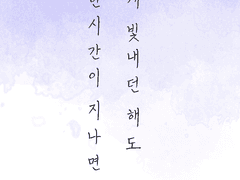 빛내던 해도
시간이 지나면